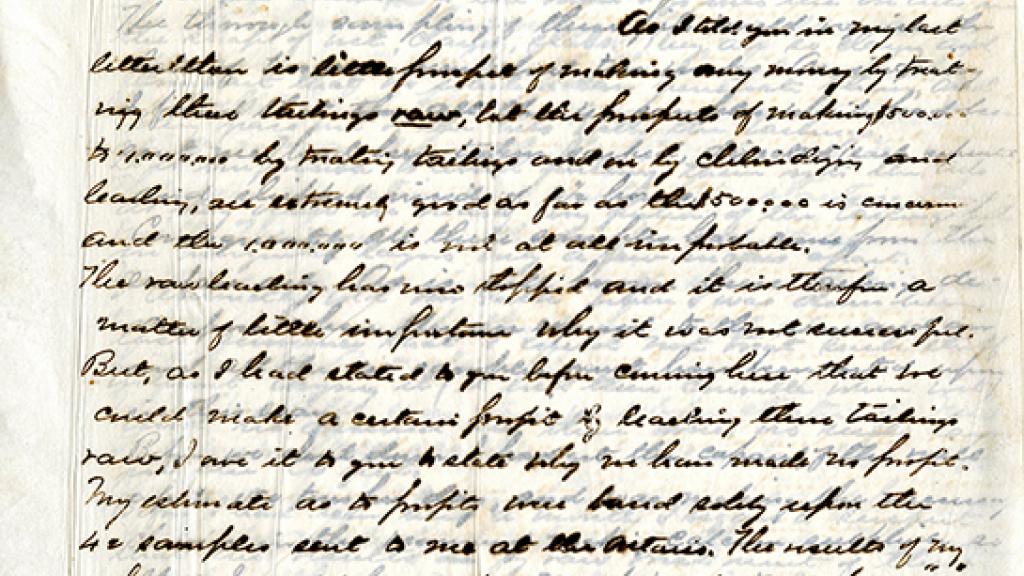 As I told you in my last
letter there is little prospect of making any money by treat-
ing these tailings raw, but the prospects of making $500.000
to 1.000.000 by treating tailings and ore by chloridizing and
leaching, are extremely good as far as the $500.000 is concern
and the 1.000.000 is not at all improbable.
The raw leaching has now stopped and it is therefore a
matter of little importance why it was not successful.
But, as I had stated to you before coming here that we
could make a certain profit by leaching these tailings
raw, I owe it to you to state why we have made no profit.
My estimate as to profits was based solely upon the
42 samples sent to me at the Ontario. The results of my